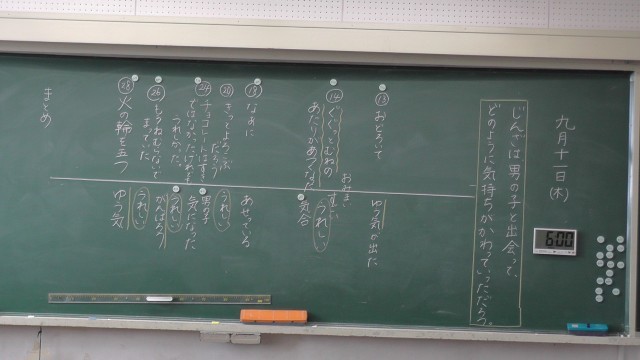 九月十一日(木)
6:00
じんざは男の子と出会って、
どのように気持ちがかわっていっただろう。
⑬おどろいて
ゆう気が出た
⑭ぐぐっとむねの
あたりがあつくなった
気合
うれしい
⑲なあに
あせっている
⑳きっとよろこぶ
だろう
うれしい
㉔チョコレートはすき
ではなかったけれど
うれしかった。
男の子
気になった
うれしい
㉖
がんばろう
うれしい
㉘火の輪を五つ
ゆう気
まとめ